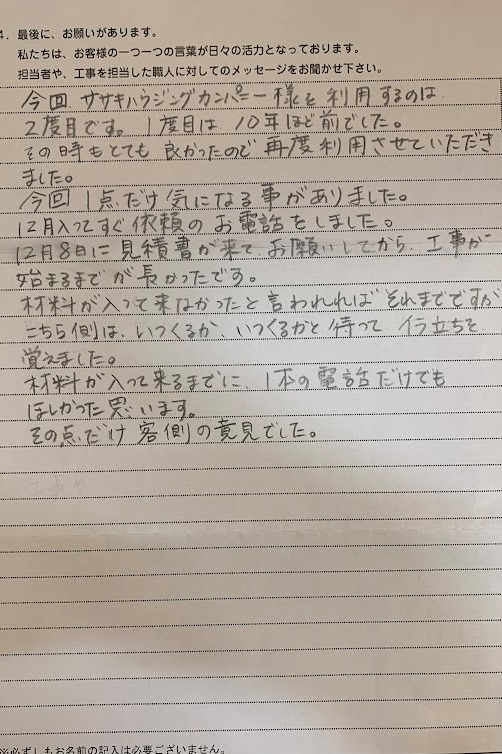 4. 最後に、お願いがあります。
私たちは、お客様の一つ一つの言葉が日々の活力となっております。
担当者や、工事を担当した職人に対してのメッセージをお聞かせ下さい。
今回、ササキハウジングカンパニー様を利用するのは
2度目です。1度目は10年ほど前でした。
その時もとても良かったので再度利用させていただき
ました。
今回1点だけ気になる事がありました。
12月入ってすぐ依頼のお電話をしました。
12月8日に見積書が来て、お願いしてから、工事が
始まるまでが長かったです。
材料が入って来なかったと言われればそれまでですが
こちら側は、いつくるか、いつくるかと待ってイラ立ちを
覚えました。
材料が入って来るまでに、1本の電話だけでも
ほしかった思います。
その点だけ客側の意見でした。
※必ずしもお名前の記入は必要ございません。